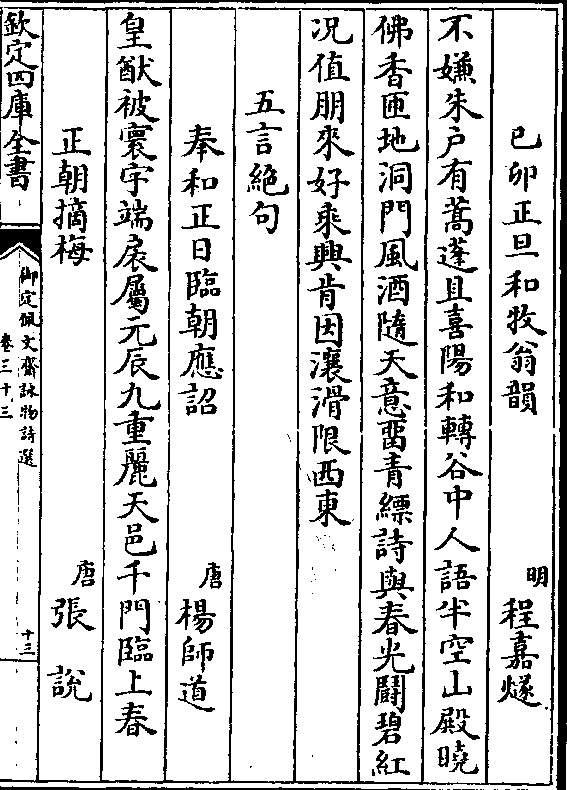 己卯正旦和牧翁韻　明程嘉燧
不嫌朱户有蒿蓬且喜陽和轉谷中人語半空山殿曉
佛香匝地洞門風酒隨天意留青縹詩與春光鬬碧紅
况值朋來好乘興肯因瀼滑限西東
五言絶句
奉和正日臨朝應詔　唐楊師道
皇猷被寰宇端扆屬元辰九重麗天邑千門臨上春
正朝摘梅　唐張說
欽定四庫全書
御定佩文齋詠物詩選
卷三十三
十三